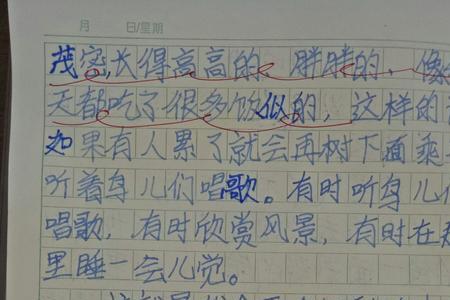 月 日/星期
茂密,长得高高的、胖胖的、像
天都吃了很多饭似的,这样的
如果有人累了就会再树下面乘
听着鸟儿们唱歌。有时听鸟儿
唱歌,有时欣赏风景,有时在
里睡一会儿觉。